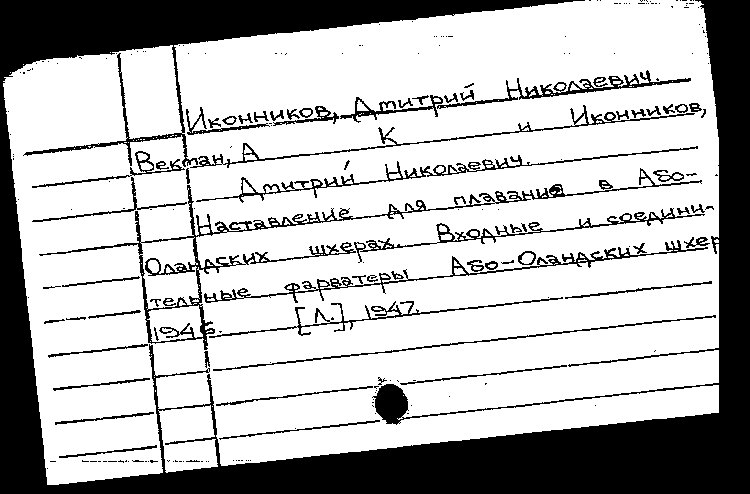 Иконников, Дмитрий Николаевич.
Векман, А К и Иконников,
Дмитрий Николаевич.
Наставление для плавания в Або-
Оландских шхерах. Входные и соедини-
тельные фарватеры Або-Оландских шхер
1946. [Л.], 1947.